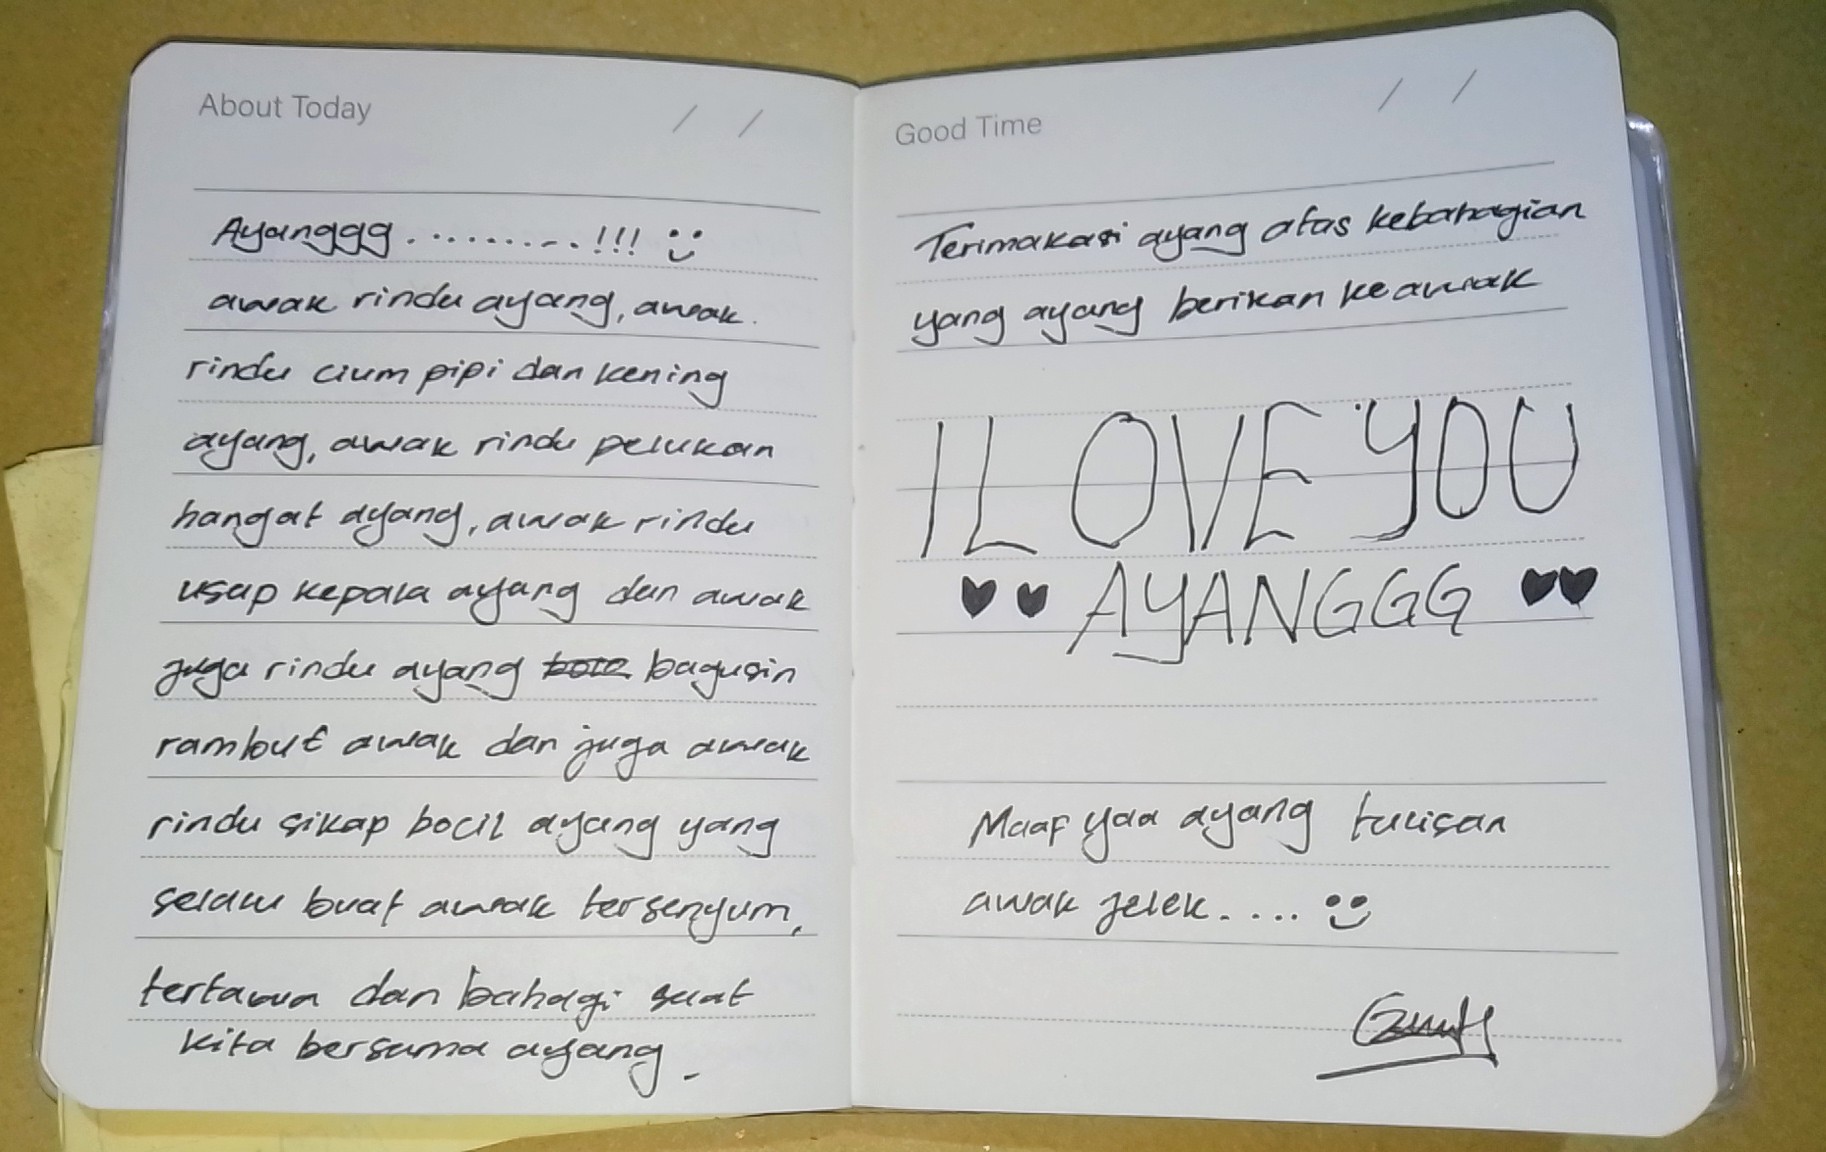 About Today / /
Ayanggg..........!!! :)
awak rindu ayang, awak.
rindu cium pipi dan kening
ayang, awak rindu pelukan
hangat ayang, awak rindu
usap kepala ayang dan awak
juga rindu ayang bagusin
rambut awak dan juga awak
rindu sikap bocil ayang yang
selalu buat awak tersenyum,
tertawa dan bahagi saat
kita bersama ayang.
Good Time / /
Terimakasi ayang atas kebahagian
yang ayang berikan ke awak
I LOVE YOU
♥♥ AYANGGG ♥♥
Maaf yaa ayang tulisan
awak jelek.... :)